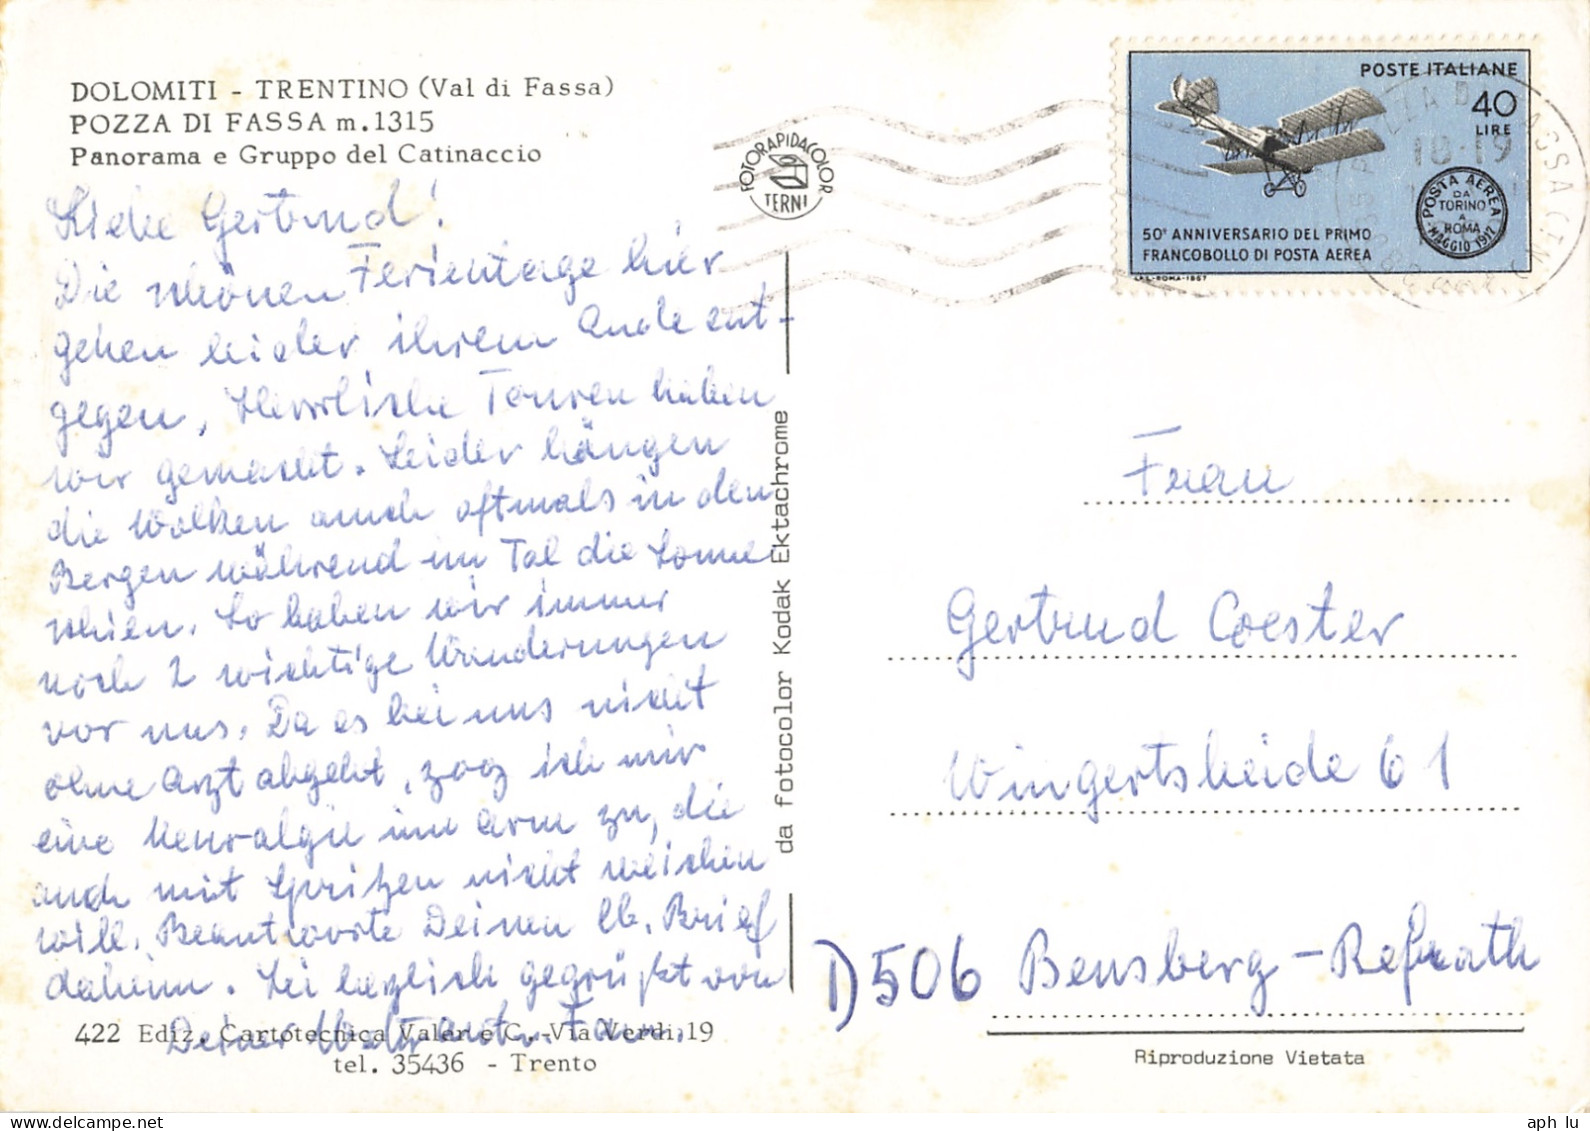 DOLOMITI - TRENTINO (Val di Fassa)
POZZA DI FASSA m.1315
Panorama e Gruppo del Catinaccio
Liebe Gertrud!
Die schönen Ferientage hier
gehen leider ihrem Ende ent-
gegen, Herrliche Touren haben
wir gemacht. Leider hängen
die Wolken auch oftmals in den
Bergen während im Tal die Sonne
schien. So haben wir immer
noch 2 wichtige Wanderungen
vor uns. Da es bei uns nicht
ohne Arzt abgeht, zog ich mir
eine Neuralgie im Arm zu, die
auch mit Spritzen nicht weichen
will. Beantworte Deinen lb. Brief
daheim. Sei herzlich gegrüßt von
Deiner
422 Ediz. Cartotecnica Valer e C.-Via Verdi,19
tel. 35436 - Trento
da fotocolor Kodak Ektachrome
FOTORAPIDACOLOR
TERNI
POSTE ITALIANE
40
LIRE
POSTA AEREA
DA
TORINO
A
ROMA
MAGGIO 1917
50° ANNIVERSARIO DEL PRIMO
FRANCOBOLLO DI POSTA AEREA
I.P.S.-ROMA-1967
18-19
Frau
Gertrud Coester
Wingertsheide 61
D 506 Bensberg-Refrath
Riproduzione Vietata
aph lu